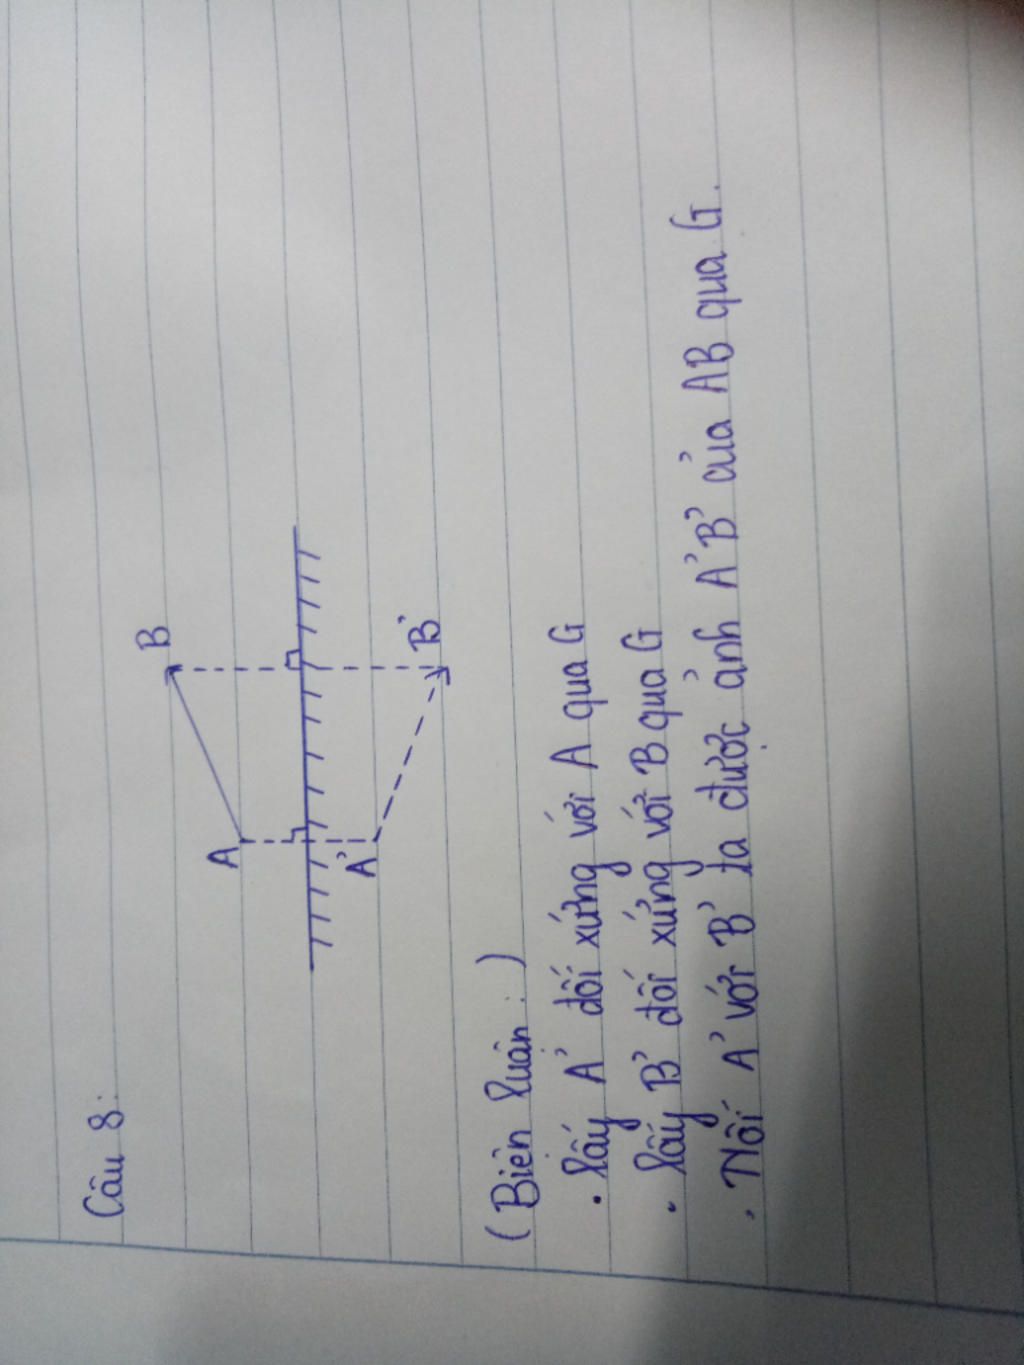 Câu 8:
B
A
A'
B'
(Biện luận:)
• Lấy A' đối xứng với A qua G
• Lấy B' đối xứng với B qua G
• Nối A' với B' ta được ảnh A'B' của AB qua G.